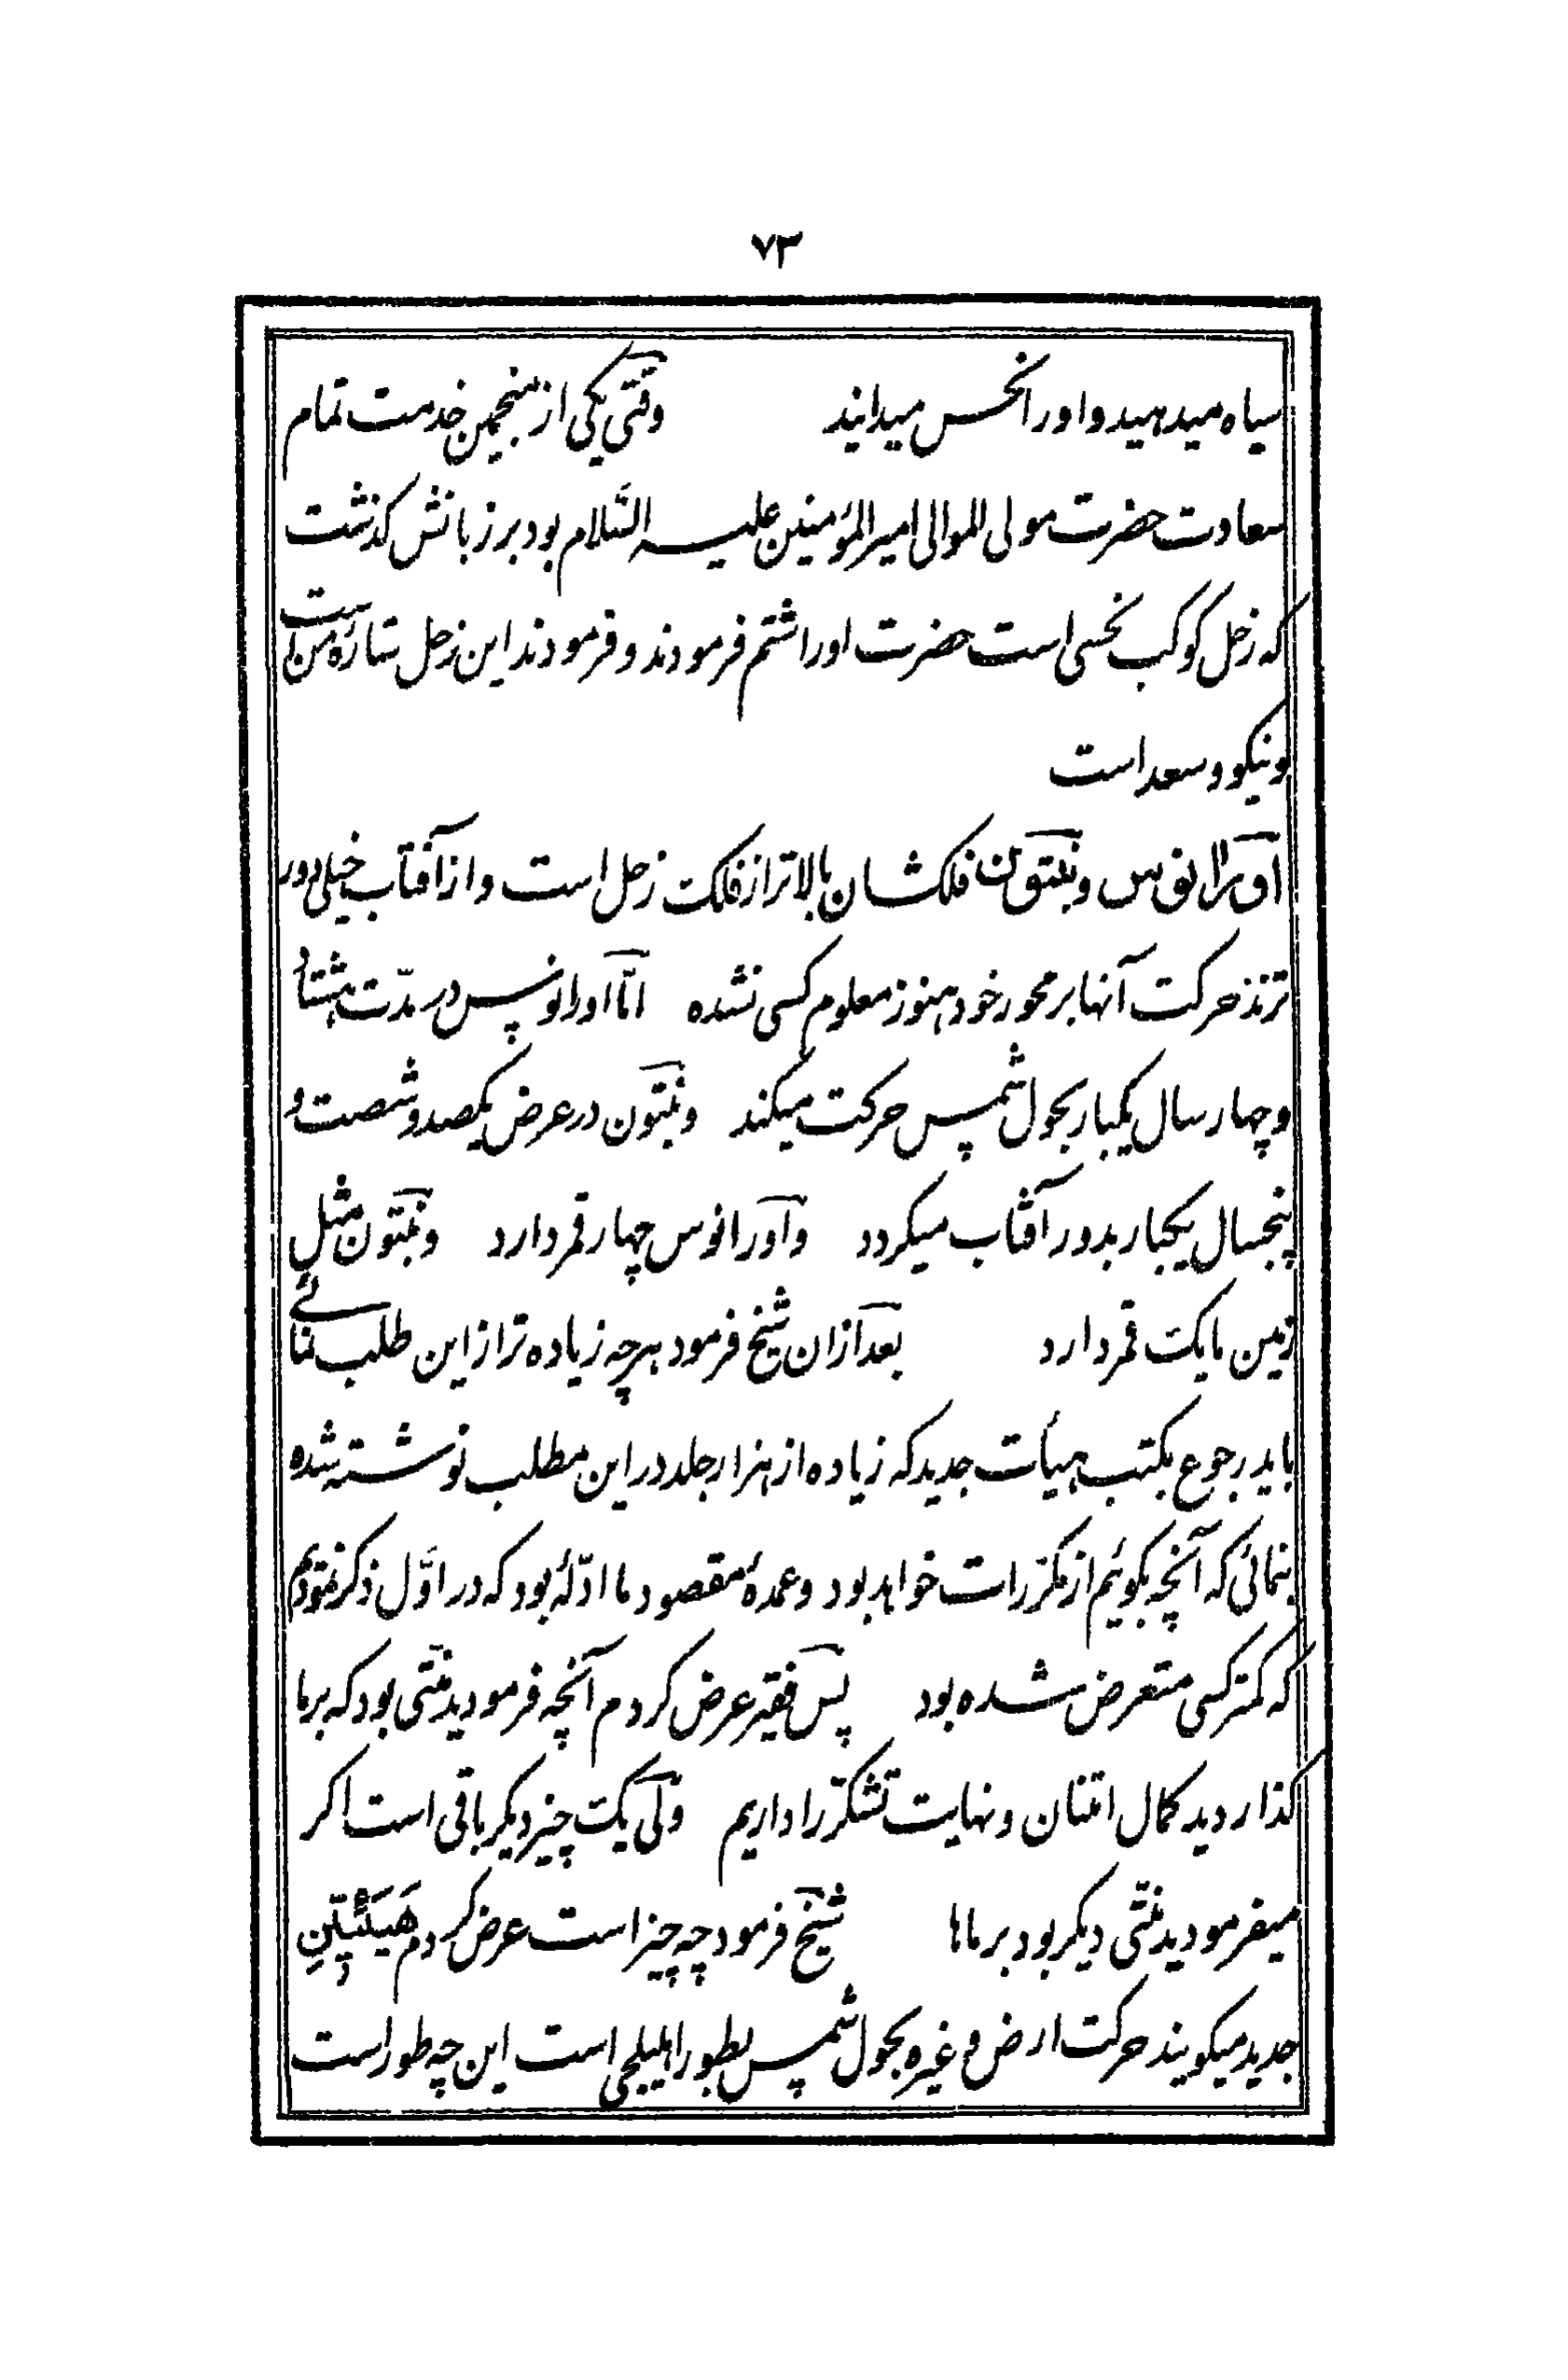 ۷۳
سیاه میدهید و اورا نحس میدانید وقتی یکی از منجمین خدمت تمام
سعادت حضرت مولی الموالی امیرالمؤمنین علیه السلام بود بر زبانش کذشت
که زحل کوکب نحسی است حضرت اورا شتم فرمودند و فرمودند این زحل ستارهٔ من است
ونیکو و سعد است
اورانوس ونپتون فلکشان بالاتر از فلک زحل است و از آفتاب خیلی دور
ترند حرکت آنها بر محور خود هنوز معلوم کسی نشده امّا اورانوس در مدّت هشتاد
وچهار سال یکبار بحول شمس حرکت میکند ونپتون در عرض یکصد و شصت و
پنجسال یکبار بدور آفتاب میکردد واورانوس چهار قمر دارد ونپتون مثل
زمین ما یک قمر دارد بعد ازان شیخ فرمود هرچه زیاده تر از این طلب نمائے
باید رجوع بکتب هیأت جدید که زیاده از هزار جلد در این مطلب نوشته شده
بنمائی که آنچه بکوئیم از مکرّرات خواهد بود وعمدهٔ مقصود ما ادلّهٔ بود که در اوّل ذکر نمودیم
که کمتر کسی متعرض شده بود پس فقیر عرض کردم آنچه فرمودید منّتی بود که بر ما
کذاردید کمال امتنان ونهایت تشکّر را داریم ولی یک چیز دیکر باقی است اکر
میفرمودید منّتی دیکر بود بر ماها شیخ فرمود چه چیز است عرض کردم هَیَئیّینِ
جدید میکویند حرکت ارض و غیره بحول شمس بطور اهلیلجی است این چه طور است